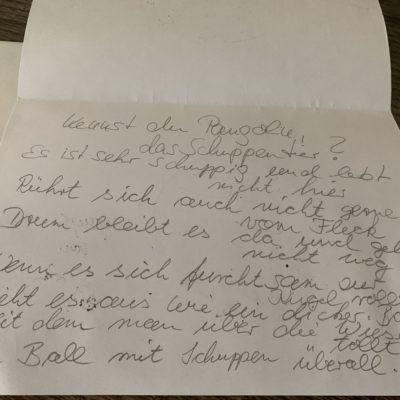 Kennst du Pangolin,
das Schuppentier?
Es ist sehr schuppig und lebt
nicht hier
Rührt sich auch nicht gerne
vom Fleck
Drum bleibt es da und geh
nicht weg
Wenn es sich furchtsam zur
Kugel rollt
ieht es aus wie ein dicker Ba
it dem man über die Wiese
tollt
Ball mit Schuppen überall.